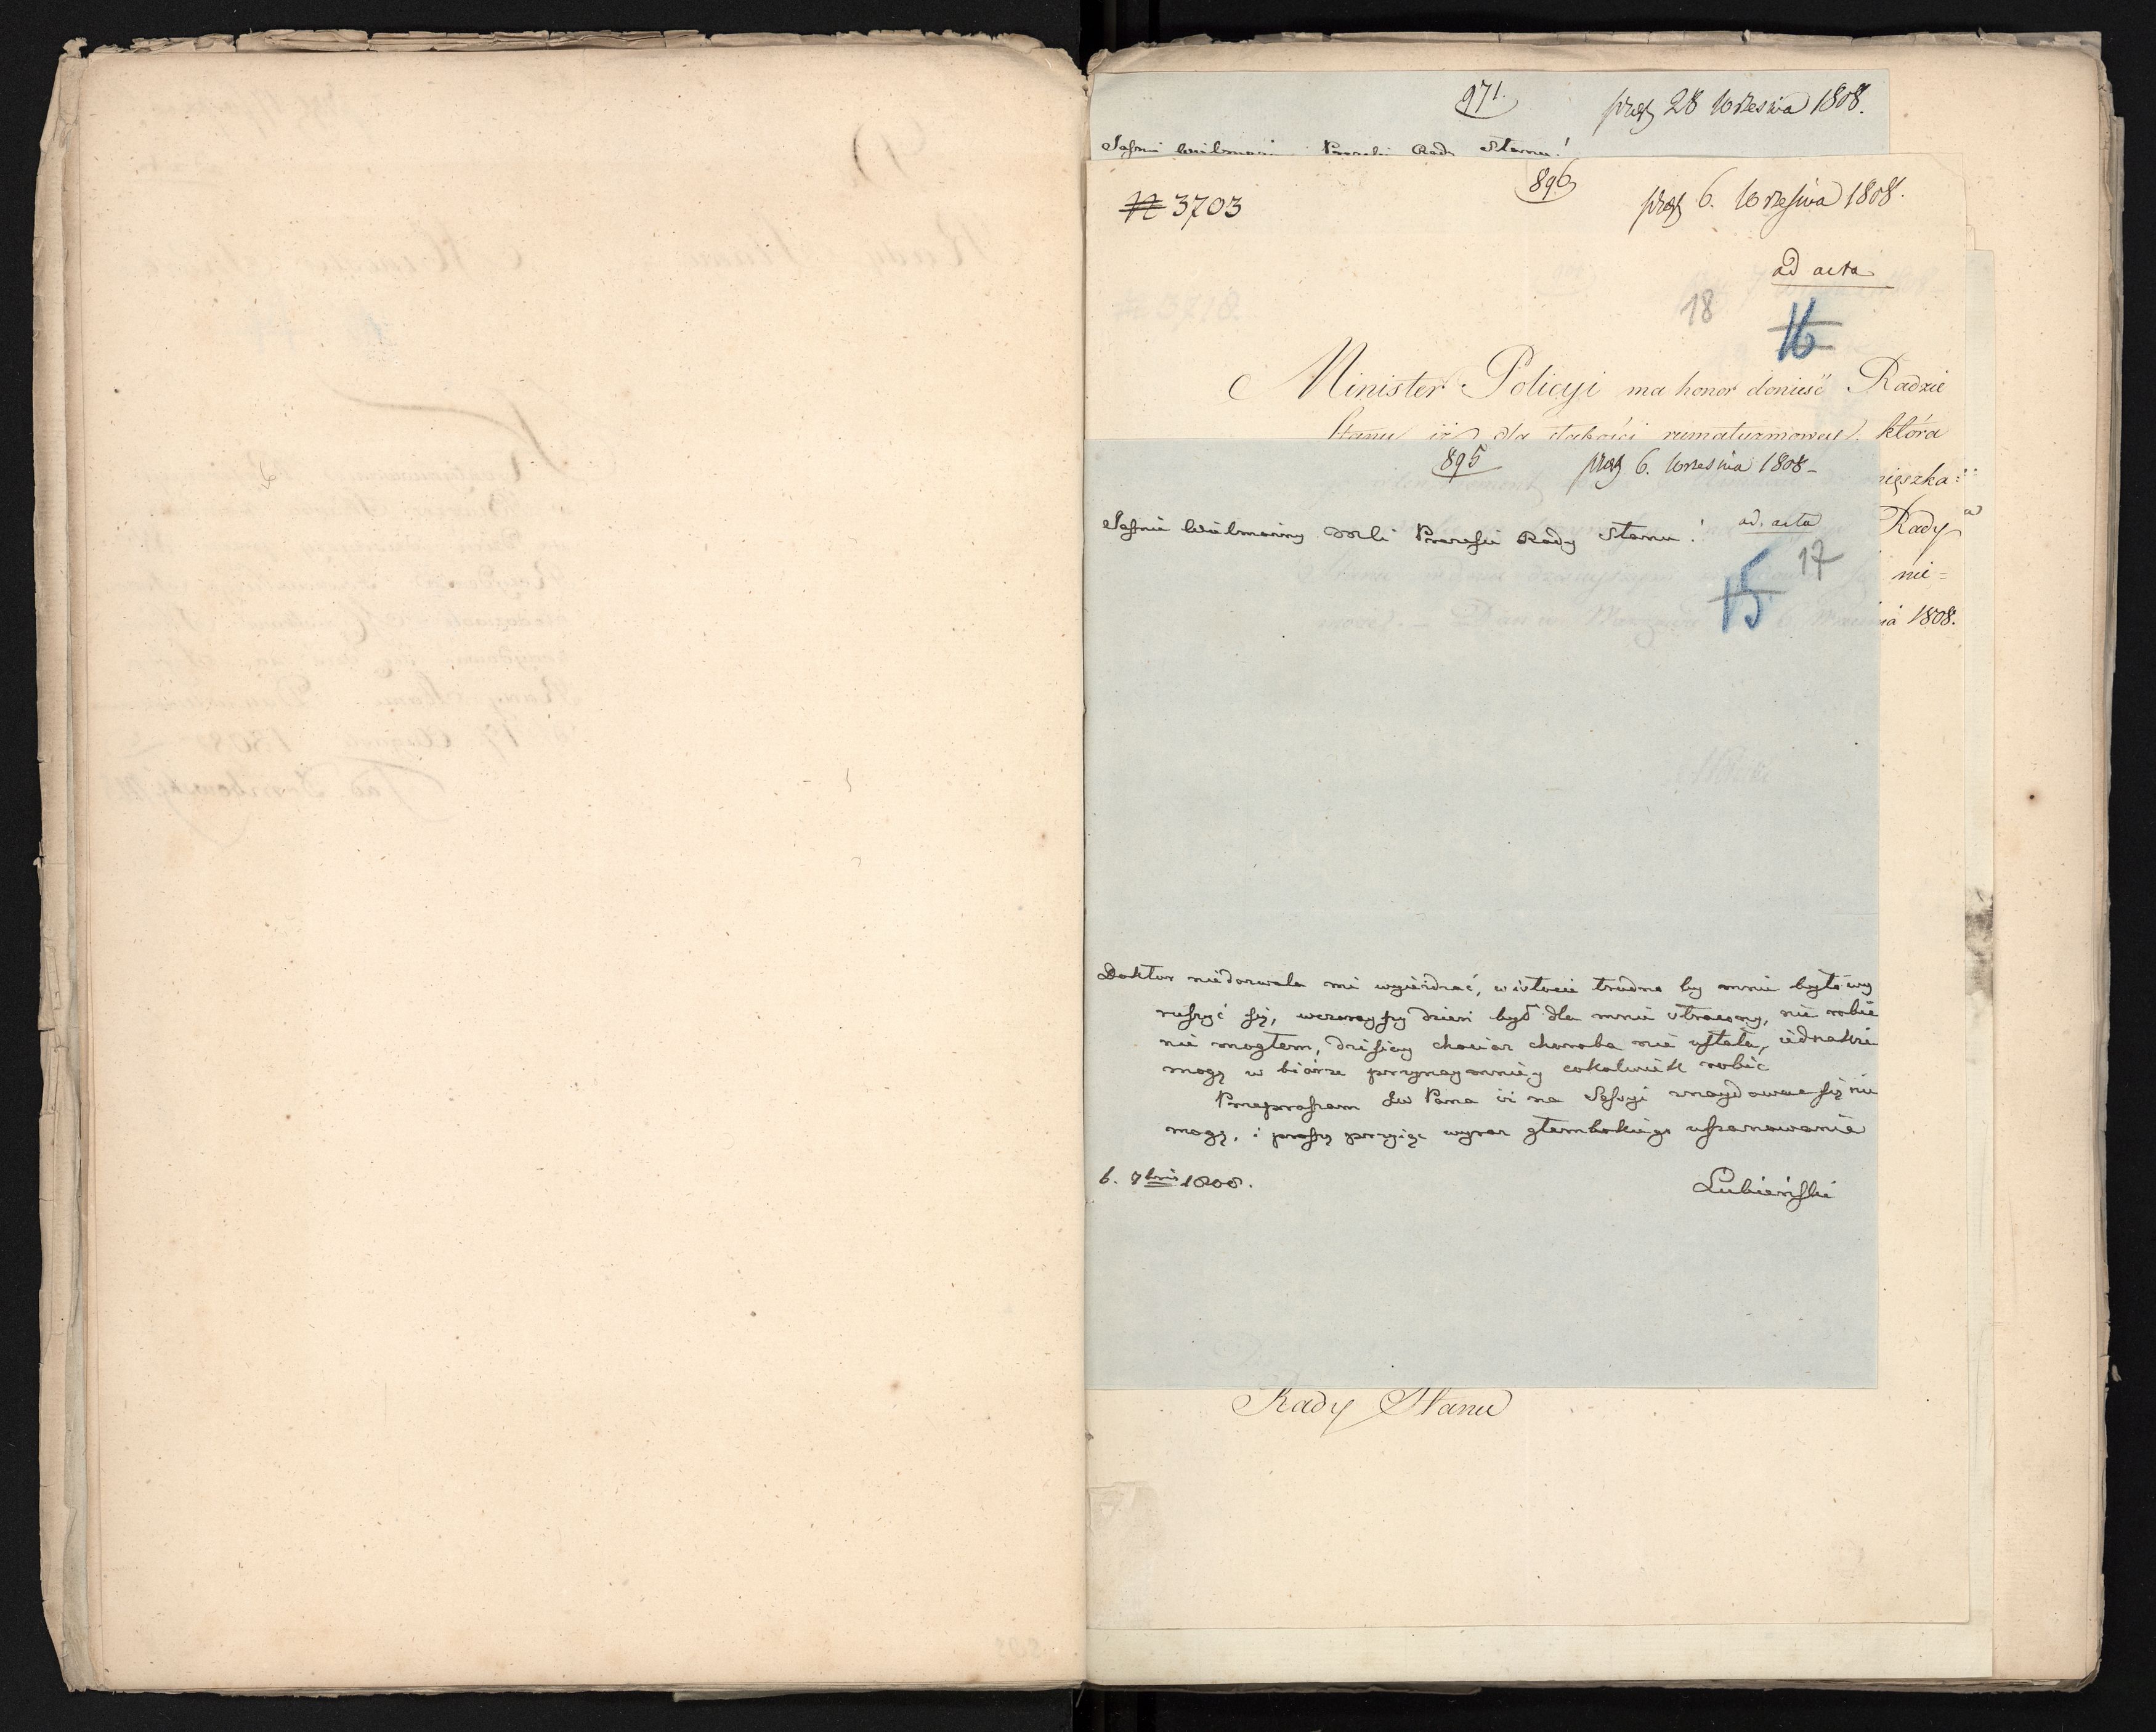 971.
praes 28 Wrześnía 1808.
Jaśnie Wielmożny Prezesie Rady Stanu!
896
N 3703
praes 6. Września 1808.
ad acta
18
16
Minister Policyi ma honor donieść Radzie
Stanu iż dla słabości rumatyzmowey, która
895
praes 6. Września 1808
mięszka=
Jaśnie Wielmożny Prezesie Rady Stanu!
ad. acta
Rady
17
15
nie=
1808.
Doktor niedozwala mi wyieżdżać, w istocie trudno by mnie było wy
ruszyć się, wczorayszy dzień był dla mnie stracony, nic robić
nie mogłem, dzisiay chociaż choroba nie ustała, iednakże
mogę w biórze przynaymniey cokolwiek robić
Przepraszam Jw Pana iż na Sessyi znaydować się nie
mogę, i proszę przyiąć wyraz głembokiego uszanowania
6. 7bris 1808.
Lubieński
Rady Stanu